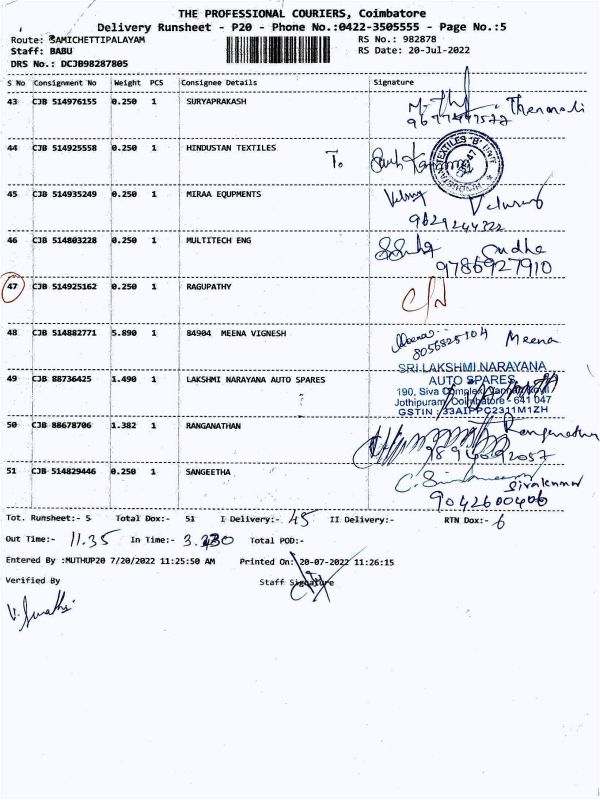 THE PROFESSIONAL COURIERS, Coimbatore
Delivery Runsheet - P20 - Phone No.:0422-3505555 - Page No.:5
Route: SAMICHETTIPALAYAM RS No.: 982878
Staff: BABU RS Date: 20-Jul-2022
DRS No.: DCJB98287805
S No Consignment No Weight PCS Consignee Details Signature
43 CJB 514976155 0.250 1 SURYAPRAKASH
44 CJB 514925558 0.250 1 HINDUSTAN TEXTILES To.
45 CJB 514935249 0.250 1 MIRAA EQUPMENTS
9629244322
46 CJB 514803228 0.250 1 MULTITECH ENG Sudha
9786927910
47 CJB 514925162 0.250 1 RAGUPATHY
48 CJB 514882771 5.890 1 84904 MEENA VIGNESH Meena
8056825104
49 CJB 88736425 1.490 1 LAKSHMI NARAYANA AUTO SPARES
SRI LAKSHMI NARAYANA
AUTO SPARES,
190, Siva Complex,
Jothipuram, Coimbatore - 641 047
GSTIN : 33AIPPC2311M1ZH
50 CJB 88678706 1.382 1 RANGANATHAN Ranganathan
51 CJB 514829446 0.250 1 SANGEETHA Sivakumar
9042600406
Tot. Runsheet:- 5 Total Dox:- 51 I Delivery:- 45 II Delivery:- RTN Dox:- 6
Out Time:- 11.35 In Time:- Total POD:-
Entered By :MUTHUP20 7/20/2022 11:25:50 AM Printed On: 20-07-2022 11:26:15
Verified By Staff Signature